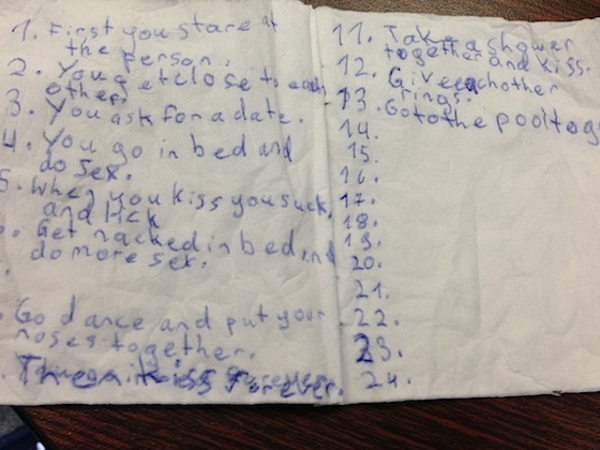 1. First you stare at
the person.
2. You get close to each
other.
3. You ask for a date.
4. You go in bed and
do sex.
5. When you kiss you suck
and lick
Get nacked in bed and
do more sex.
Go dance and put your
noses together.
kiss forever.
11. Take a shower
together and kiss.
12. Give eachother
rings.
13. Go to the pool tog
14.
15.
16.
17.
18.
19.
20.
21.
22.
23.
24.